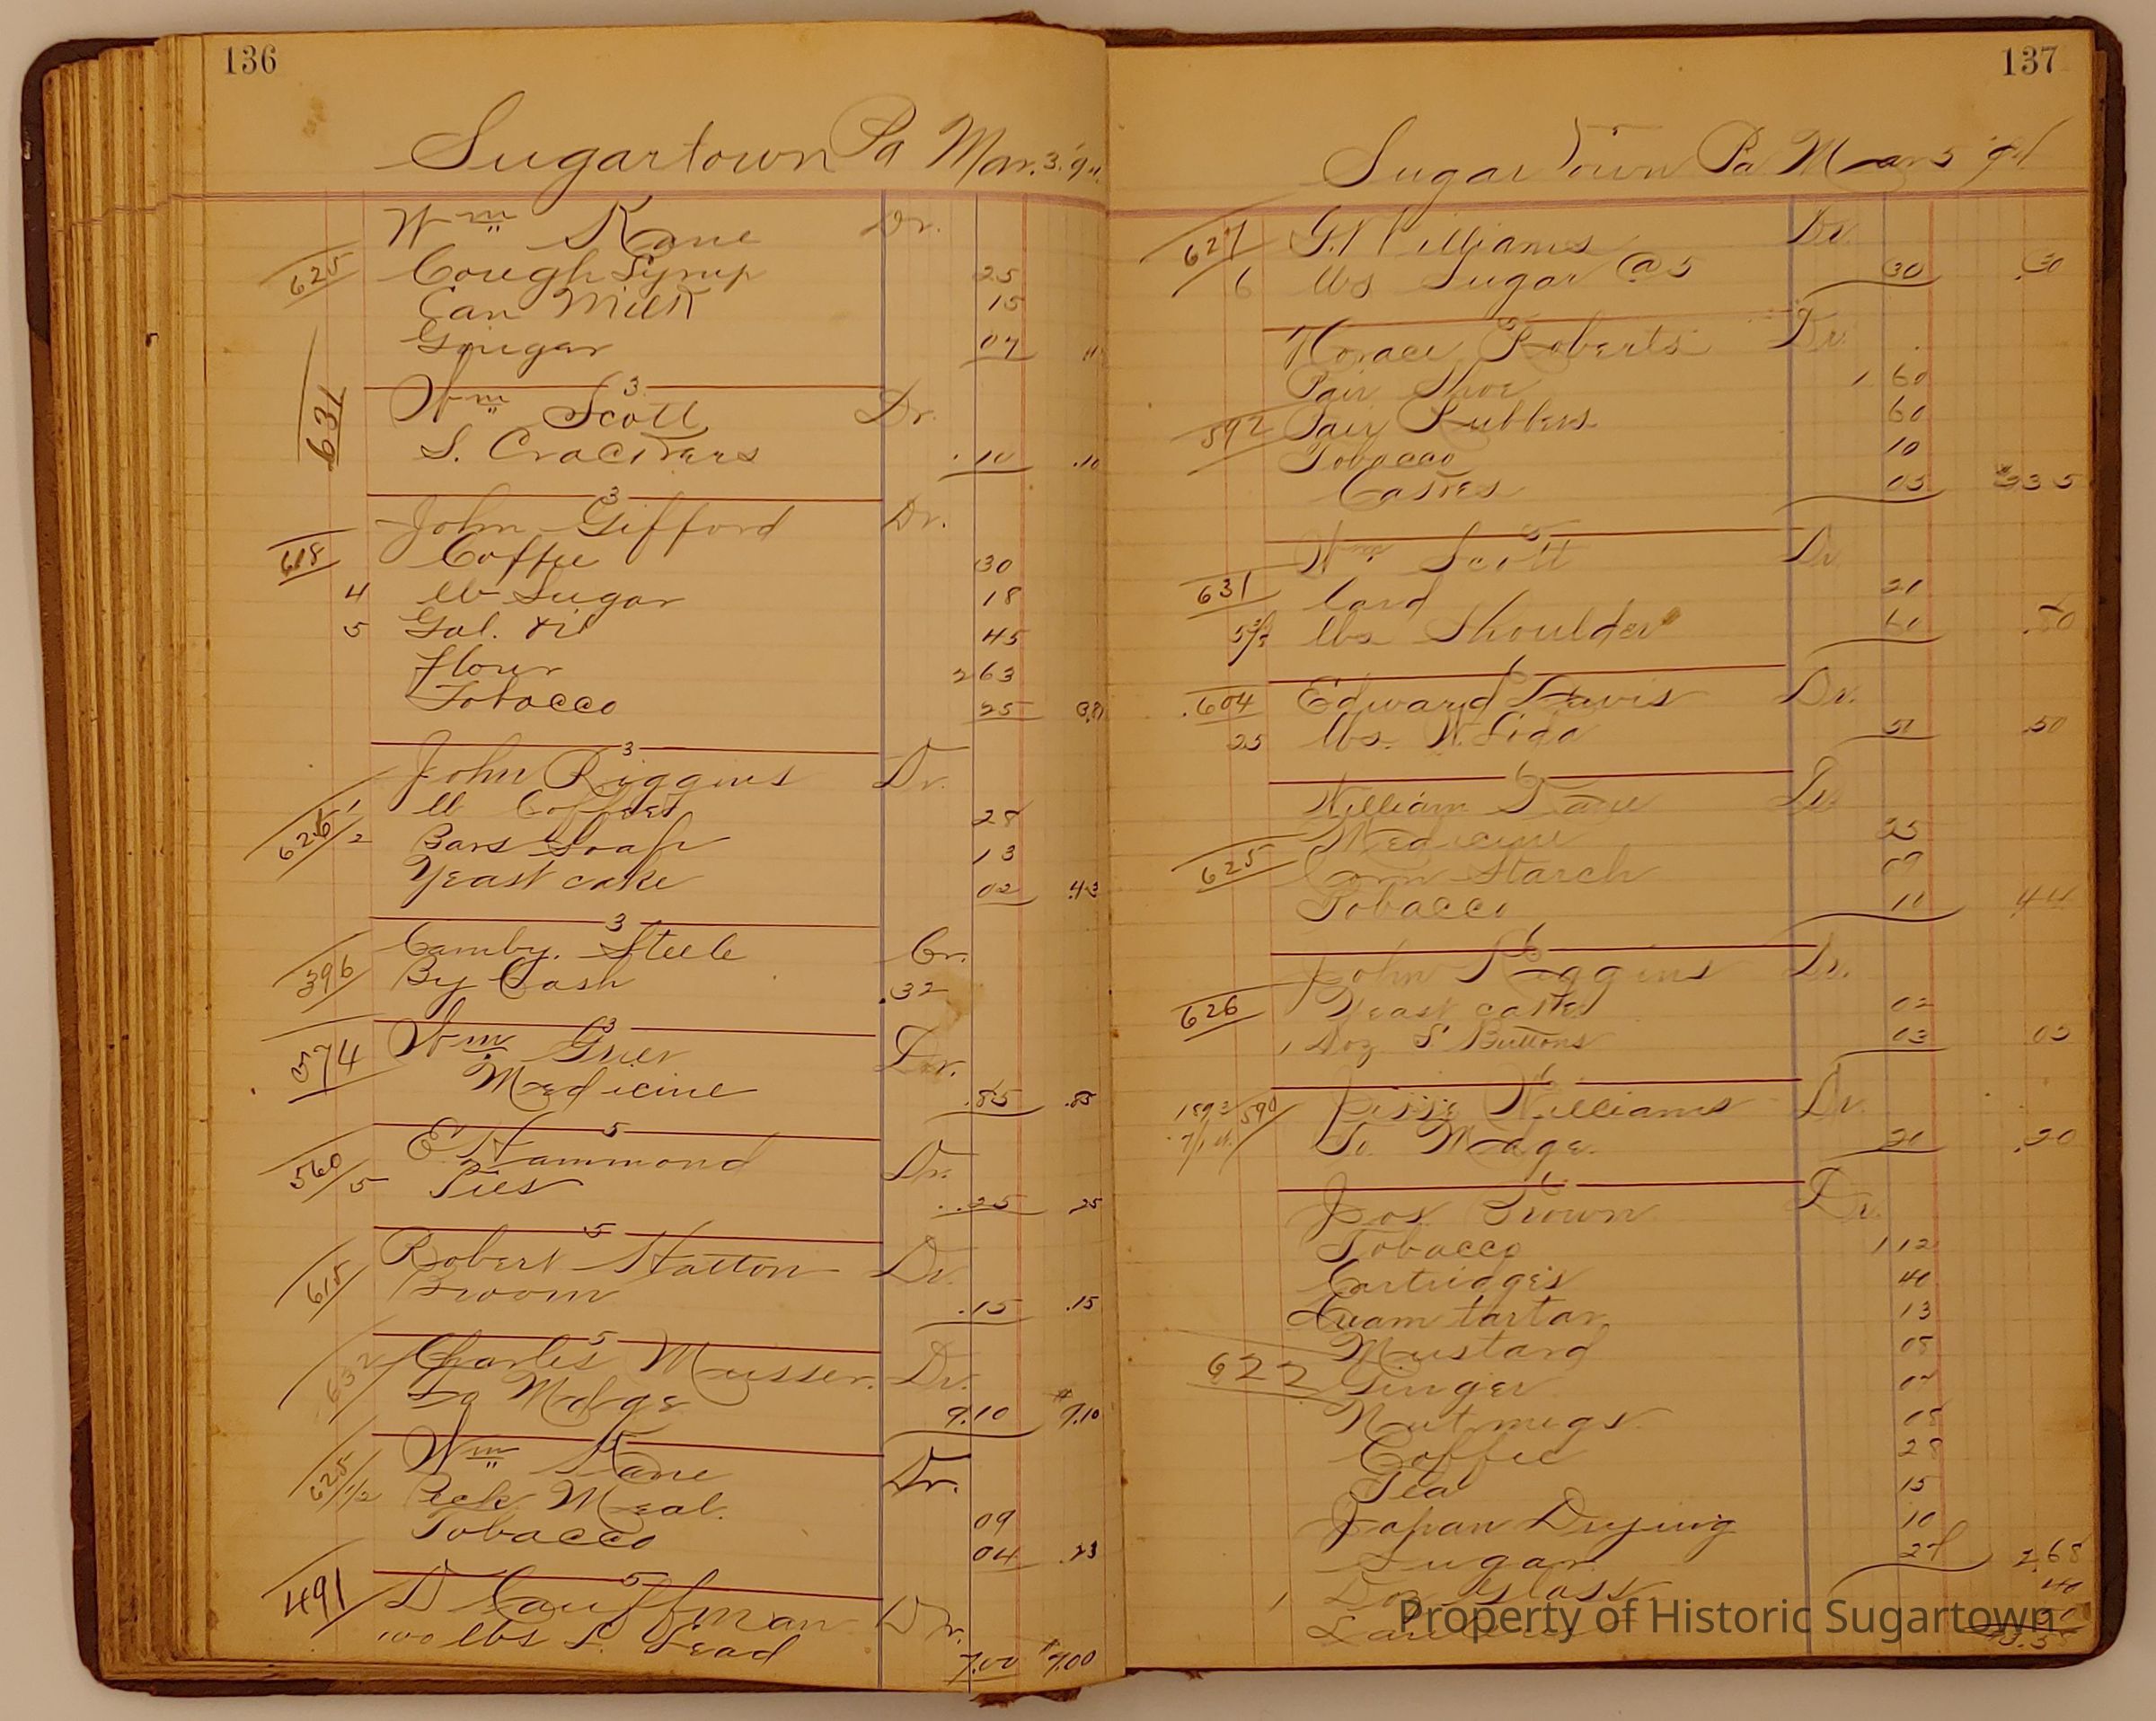 136
Sugartown Pa Mar. 3. '94
Wm Kane Dr.
625 Cough Syrup 25
Can Milk 15
Gingar 07
3
631 Wm Scott Dr.
S. Crackers .10 .10
3
John Gifford Dr.
618 Coffee 30
4 lb Sugar 18
5 Gal. Oil 45
Flour 2 63
Tobacco 25 3.81
3
John Riggins Dr.
626 1 lb Coffee 28
2 Bars Soap 13
Yeast cake 02 .43
3
396 Camby. Steele Cr.
By Cash .32
3
574 Wm Grier Dr.
Medicine .85 .85
5
560 E Hammond Dr.
5 Pies .25 .25
5
615 Robert Hatton Dr.
Broom .15 .15
5
632 Charles Musser. Dr.
To Mdge 9.10 $9.10
5
625 Wm Kane Dr.
1/2 Peck Meal. 09
Tobacco 04 .23
5
491 D Kauffman Dr.
100 lbs Lead 7.00 $7.00
137
Sugartown Pa Mar 5 94
627 G. Williams Dr.
6 lbs Sugar @ 5 30 .30
5
Horace Roberts Dr.
Pair Shoe 1 60
592 Pair Rubbers 60
Tobacco 10
Cakes 05 $2 35
5
Wm Scott Dr
631 Lard 20
lbs Shoulder 60 .80
6
604 Edward Davis Dr.
25 lbs. W. Lead 50 .50
6
William Kane Dr
Medicine 25
625 Corn Starch 09
Tobacco 10 44
6
John Riggins Dr.
626 Yeast cake 02
1 Doz S. Buttons 03 05
6
1893 590 Jesse Williams Dr.
To Mdge. 20 .20
6
Jos Brown Dr.
Tobacco 1 12
Cartridges 40
Cream tartar 13
Mustard 08
622 Ginger 07
Nutmegs 05
Coffee 28
Tea 15
Japan Drying 10
Sugar 2,68
1 Doz Glass 40
Property of Historic Sugartown